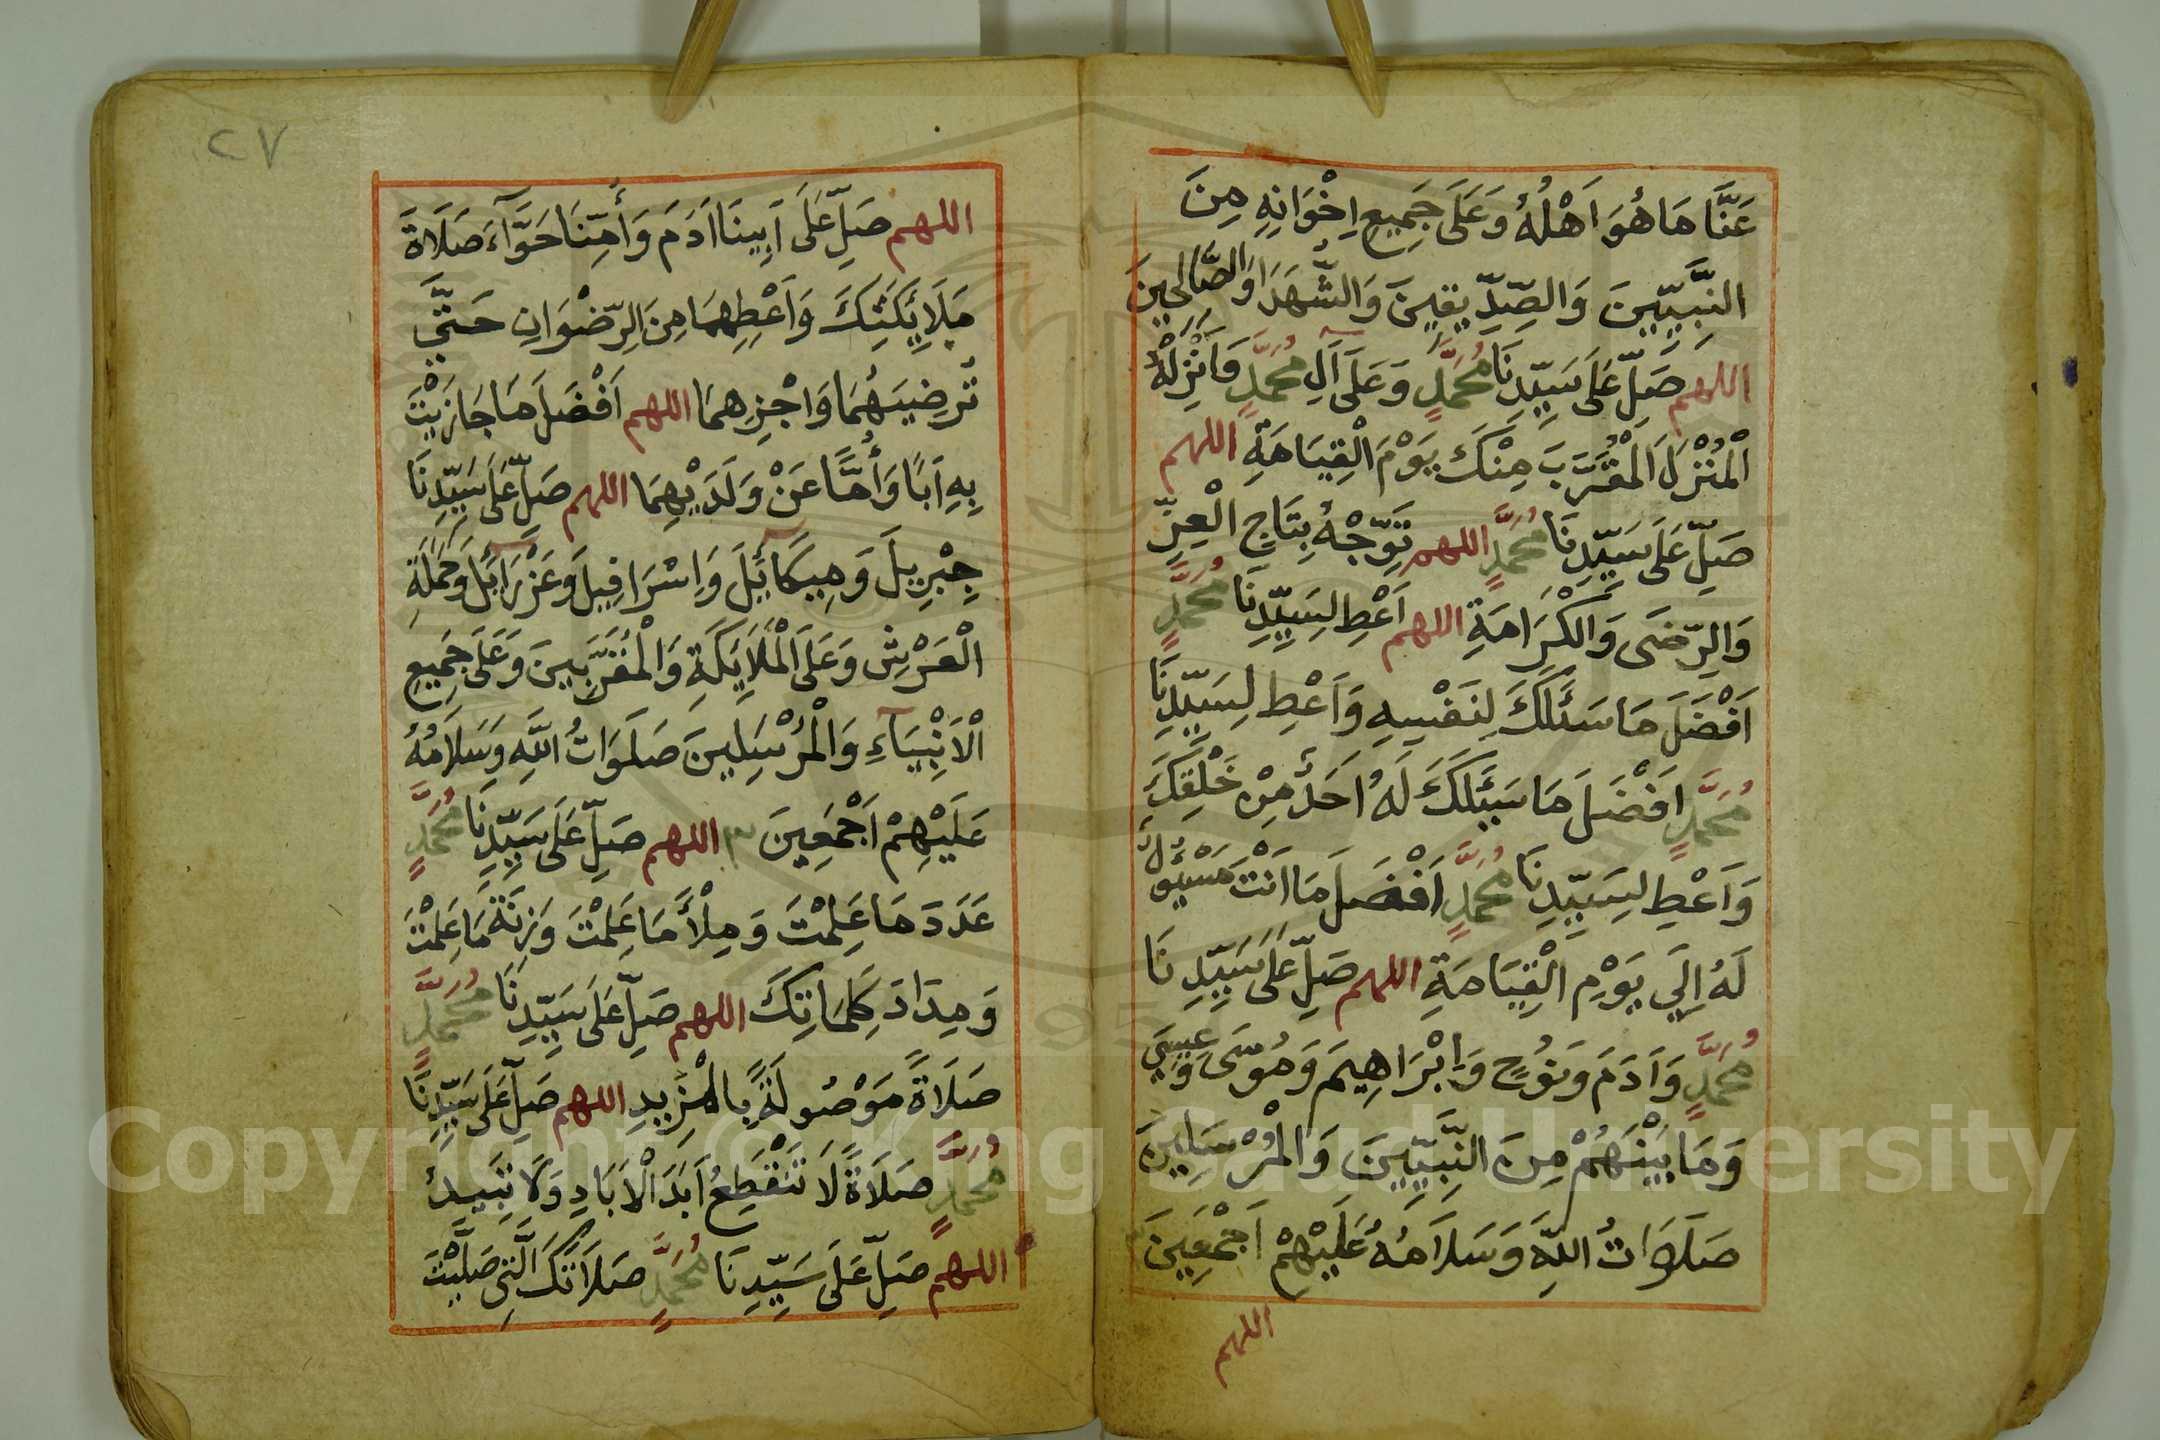 عَنَّا مَا هُوَ اَهْلُهُ وَعَلَى جَمِيعِ اِخْوَانِهِ مِنَ
النَّبِيِّينَ وَالصِّدِّيقِينَ وَالشُّهَدَا وَالصَّالِحِينَ
اللهم صَلِّ عَلَى سَيِّدِنَا مُحَمَّدٍ وَعَلَى آلِ مُحَمَّدٍ وَاَنْزِلْهُ
الْمُنْزَلَ الْمُقَرَّبَ مِنْكَ يَوْمَ الْقِيَامَةِ اللهم
صَلِّ عَلَى سَيِّدِنَا مُحَمَّدٍ اللهم تَوِّجْهُ بِتَاجِ الْعِزِّ
وَالرِّضَى وَالْكَرَامَةِ اللهم اَعْطِ لِسَيِّدِنَا مُحَمَّدٍ
اَفْضَلَ مَا سَئَلَكَ لِنَفْسِهِ وَاَعْطِ لِسَيِّدِنَا
مُحَمَّدٍ اَفْضَلَ مَا سَئَلَكَ لَهُ اَحَدٌ مِنْ خَلْقِكَ
وَاَعْطِ لِسَيِّدِنَا مُحَمَّدٍ اَفْضَلَ مَا اَنْتَ مَسْئُولٌ
لَهُ اِلَى يَوْمِ الْقِيَامَةِ اللهم صَلِّ عَلَى سَيِّدِنَا
مُحَمَّدٍ وَاَدَمَ وَنُوحٍ وَاِبْرَاهِيمَ وَمُوسَى وَعِيسَى
وَمَا بَيْنَهُمْ مِنَ النَّبِيِّينَ وَالْمُرْسَلِينَ
صَلَوَاتُ اللَّهِ وَسَلَامُهُ عَلَيْهِمْ اَجْمَعِينَ
اللهم
٢٧
اللهم صَلِّ عَلَى اَبِينَا اَدَمَ وَأُمِّنَا حَوَّآءَ صَلَاةَ
مَلَايِٕكَتِكَ وَاَعْطِهِمَا مِنَ الرِّضْوَانِ حَتَّى
تُرْضِيَهُمَا وَاجْزِهِمَا اللهم اَفْضَلَ مَا جَازَيْتَ
بِهِ اَبًا وَأُمًّا عَنْ وَلَدَيْهِمَا اللهم صَلِّ عَلَى سَيِّدِنَا
جِبْرِيلَ وَمِيكَآئِلَ وَاِسْرَافِيلَ وَعَزْرَآئِلَ وَحَمَلَةِ
الْعَرْشِ وَعَلَى الْمَلَايِٕكَةِ وَالْمُقَرَّبِينَ وَعَلَى جَمِيعِ
الْاَنْبِيَآءِ وَالْمُرْسَلِينَ صَلَوَاتُ اللَّهِ وَسَلَامُهُ
عَلَيْهِمْ اَجْمَعِينَ ٣ اللهم صَلِّ عَلَى سَيِّدِنَا مُحَمَّدٍ
عَدَدَ مَا عَلِمْتَ وَمِلْأَ مَا عَلِمْتَ وَزِنَةَ مَا عَلِمْتَ
وَمِدَادَ كَلِمَاتِكَ اللهم صَلِّ عَلَى سَيِّدِنَا مُحَمَّدٍ
صَلَاةً مَوْصُولَةً بِالْمَزِيدِ اللهم صَلِّ عَلَى سَيِّدِنَا
مُحَمَّدٍ صَلَاةً لَا تَنْقَطِعُ اَبَدَ الْاَبَادِ وَلَا تَبِيدُ
اللهم صَلِّ عَلَى سَيِّدِنَا مُحَمَّدٍ صَلَاتَكَ الَّتِى صَلَّيْتَ
Copyright © King Saud University